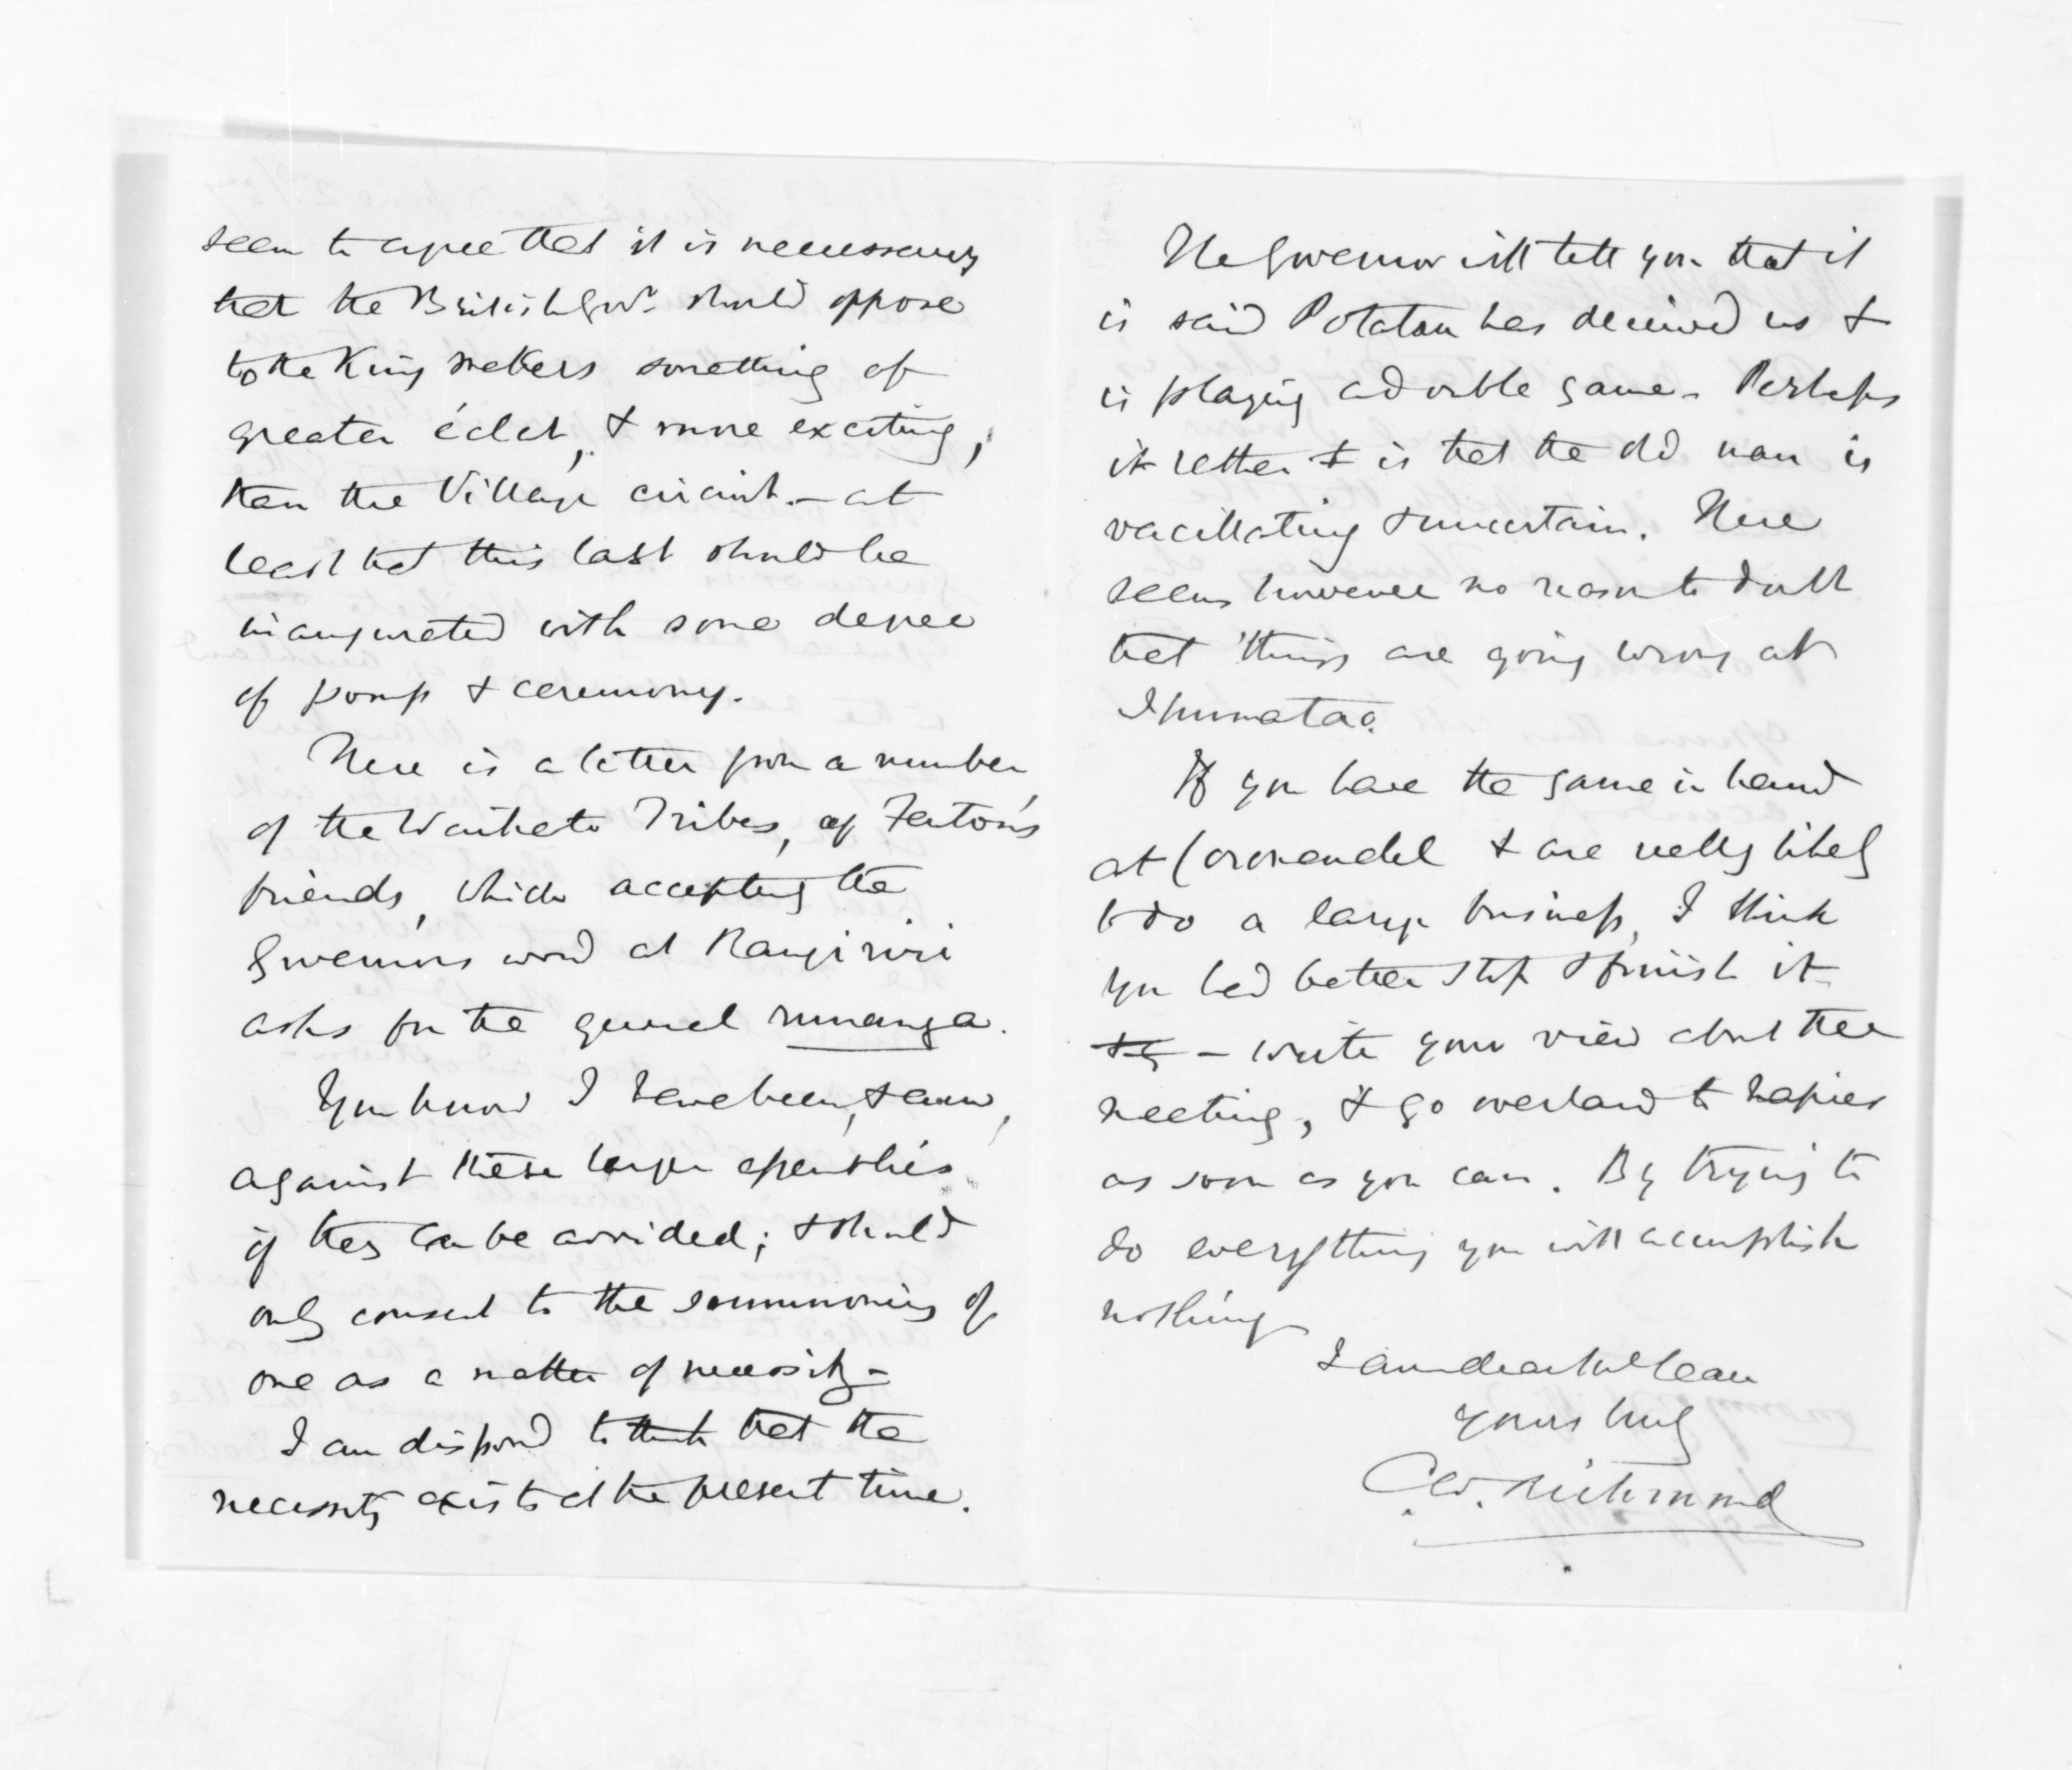 seem to agree that it is necessary
that the British Govt. should oppose
to the King makers something of
greater éclat, & more exciting,
than the Village circuit. - at
least that this last should be
inaugurated with some degree
of pomp & ceremony.
There is a letter from a number
of the Waikato Tribes, of Fenton's
friends, which accepting the
Governors word at Rangiriri
asks for the general runanga.
You know I have been, & am,
against these large assemblies
if they can be avoided; & should
only consent to the summoning of
one as a matter of necessity -
I am disposed to think that the
necessity exists at the present time.
The Governor will tell you that it
is said Potatau has deceived us &
is playing a double game - Perhaps
it rather is that the old man is
vacillating & uncertain. There
seems however no reason to doubt
that things are going wrong at
Ihumatao.
If you have the game in hand
at Coromandel & are really likely
to do a large business, I think
you had better stop & finish it
- write your view about the
meeting, & go overland to Napier
as soon as you can. By trying to
do everything you will accomplish
nothing
I am dear McLean
Yours truly
C.W. Richmond